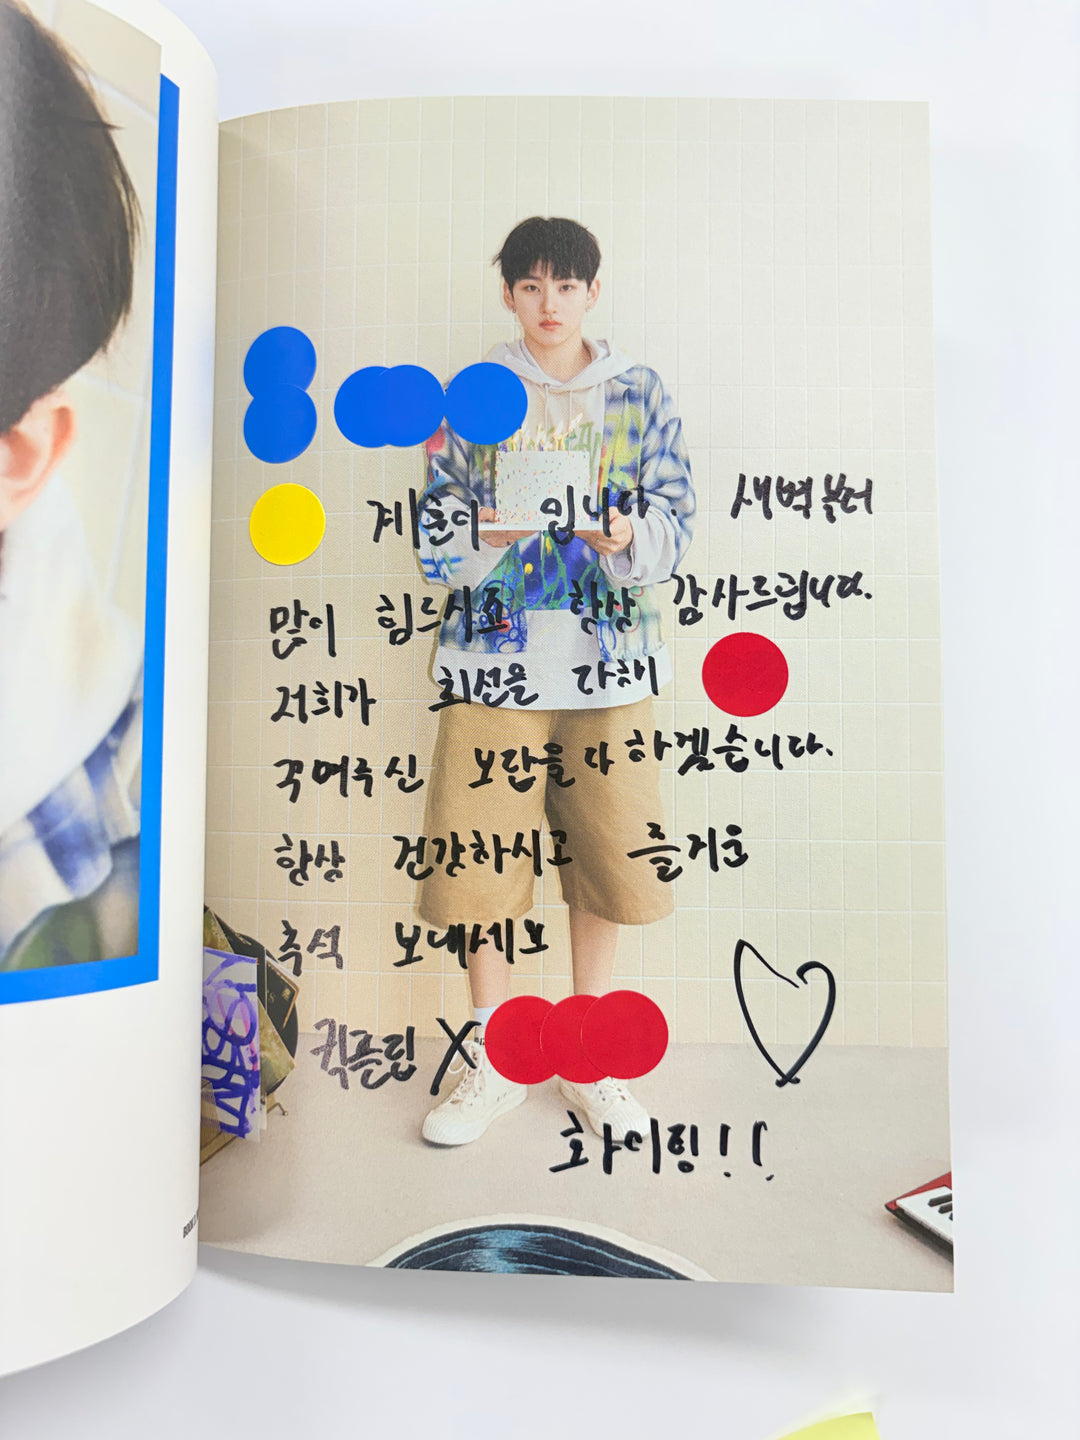 계훈이 입니다. 새벽부터
많이 힘드시죠 항상 감사드립니다.
저희가 최선을 다해
꾸며주신 보람을 다 하겠습니다.
항상 건강하시고 즐거운
추석 보내세요
킥플립 X
화이팅!!